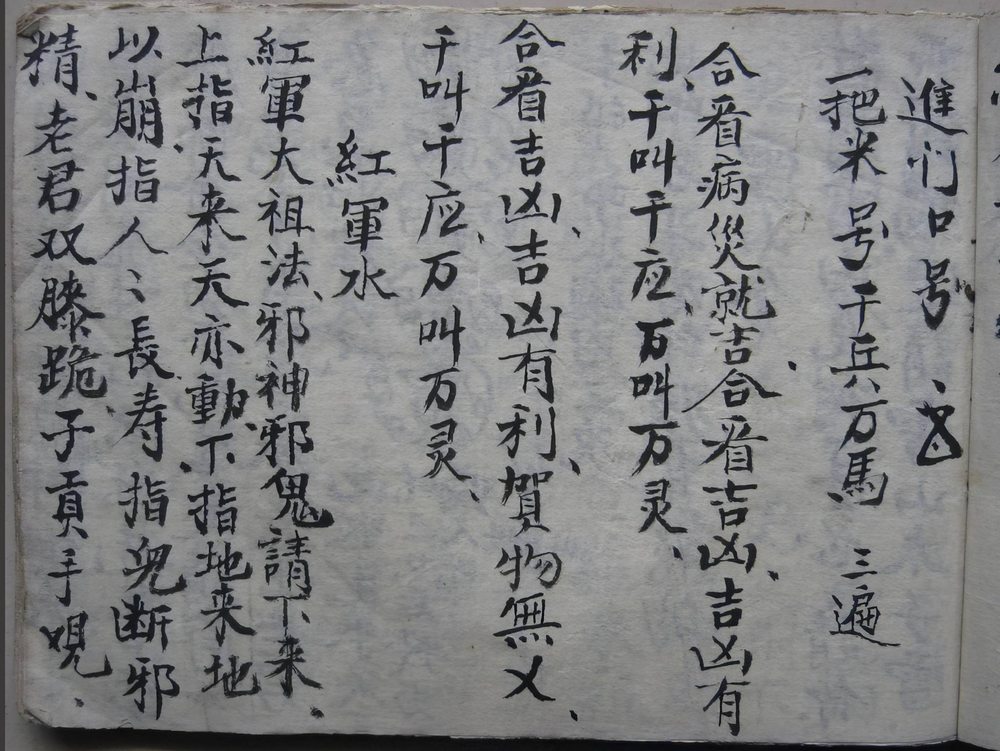 進们口号
一把米号千兵万馬 三遍
合看病災就吉合看吉凶、吉凶有
利、千叫千应、万叫万灵、
合看吉凶、吉凶有利、賀物無义、
千叫千应、万叫万灵、
紅軍水
紅軍大祖法、邪神邪鬼請下来、
上指天来天亦動、下指地来地
以崩、指人〻長寿指鬼断邪
精、老君双膝跪、子貢手